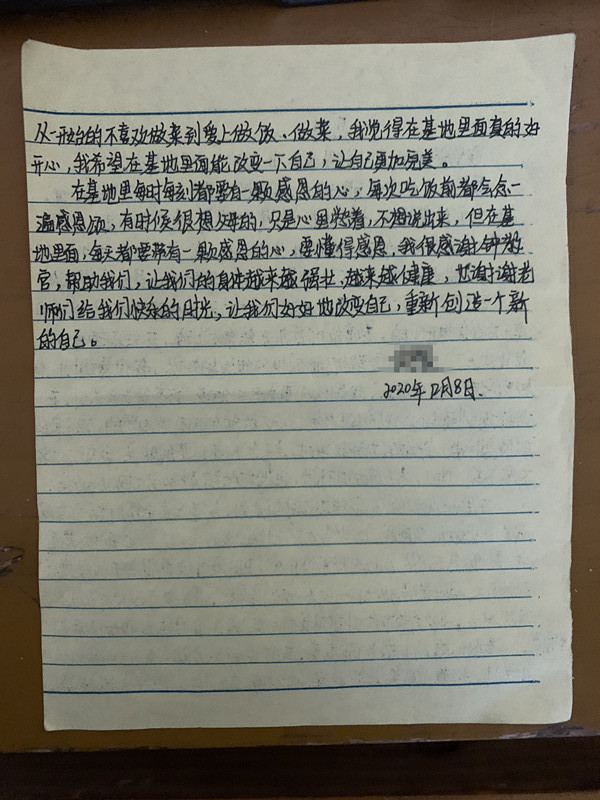 从一开始的不喜欢做菜到爱上做饭、做菜，我觉得在基地里面真的好
开心，我希望在基地里面能改变一下自己，让自己更加完美。
在基地里每时每刻都要有一颗感恩的心，每次吃饭前都会念一
遍感恩颂，有时候很想父母的，只是心里憋着，不想说出来，但在基
地里面，每天都要带有一颗感恩的心，要懂得感恩，我很感谢钟教
官，帮助我们，让我们的身体越来越强壮，越来越健康，也谢谢老
师们给我们快乐的时光，让我们好好地改变自己，重新创造一个新
的自己。
2020年12月8日.